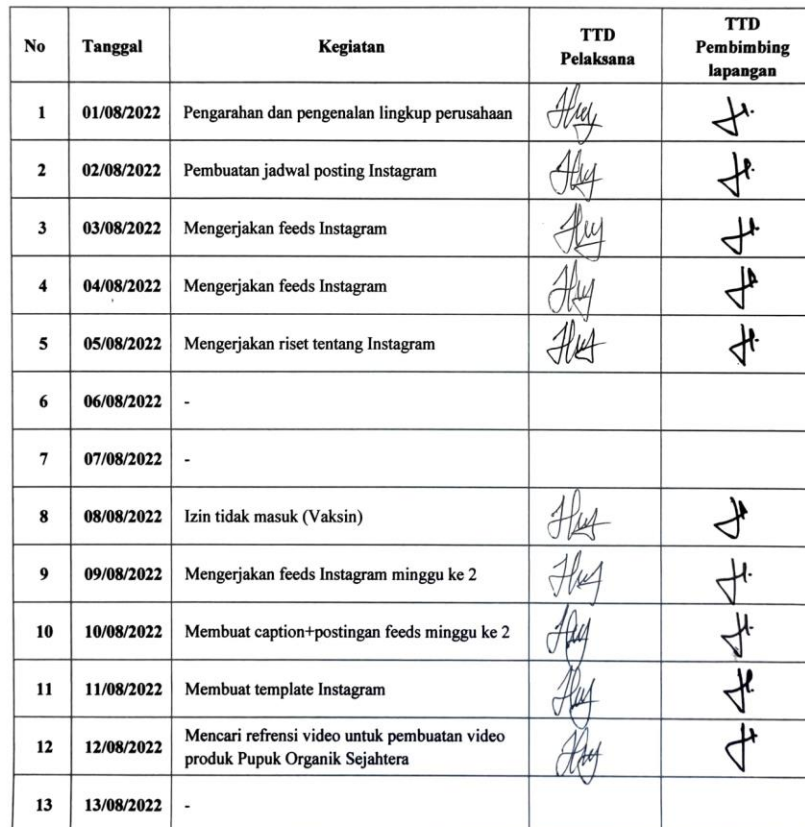 No Tanggal Kegiatan TTD Pelaksana TTD Pembimbing lapangan
1 01/08/2022 Pengarahan dan pengenalan lingkup perusahaan
2 02/08/2022 Pembuatan jadwal posting Instagram
3 03/08/2022 Mengerjakan feeds Instagram
4 04/08/2022 Mengerjakan feeds Instagram
5 05/08/2022 Mengerjakan riset tentang Instagram
6 06/08/2022 -
7 07/08/2022 -
8 08/08/2022 Izin tidak masuk (Vaksin)
9 09/08/2022 Mengerjakan feeds Instagram minggu ke 2
10 10/08/2022 Membuat caption+postingan feeds minggu ke 2
11 11/08/2022 Membuat template Instagram
12 12/08/2022 Mencari refrensi video untuk pembuatan video
produk Pupuk Organik Sejahtera
13 13/08/2022 -